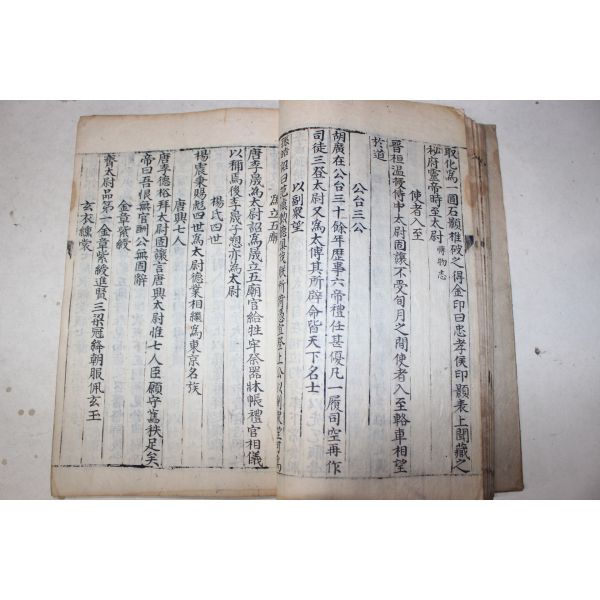 取化爲一圓石顥椎破之得金印曰忠孝侯印顥表上聞藏之
秘府靈帝時至太尉 博物志
使者八至
晉桓溫授侍中太尉固讓不受旬月之間使者八至軺車相望
於道
公台三公
胡廣在公台三十餘年歷事六帝禮任甚優凡一履司空再作
司徒三登太尉又爲太傅其所辟命皆天下名士
以副衆望
爲立五廟
唐李晟爲太尉詔爲晟立五廟官給牲牢祭器牀帳禮官相儀
以稱焉後李晟子愬亦爲太尉
楊氏四世
楊震秉賜彪四世爲太尉德業相繼爲東京名族
唐興七人
唐李德裕拜太尉固讓言唐興太尉惟七人臣願守舊秩足矣
帝曰吾恨無官酬公無固辭
金章紫綬
齊太尉品第一金章紫綬進賢三梁冠絳朝服佩玄玉
玄衣纁裳